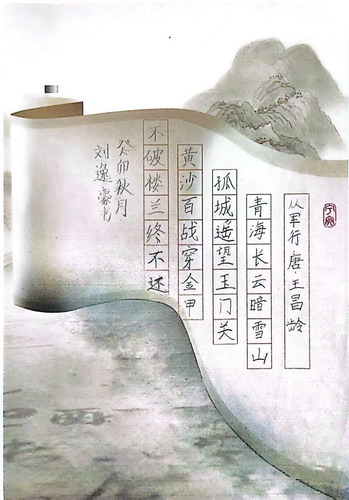 从军行 唐·王昌龄
青海长云暗雪山
孤城遥望玉门关
黄沙百战穿金甲
不破楼兰终不还
癸卯秋月
刘逸豪书